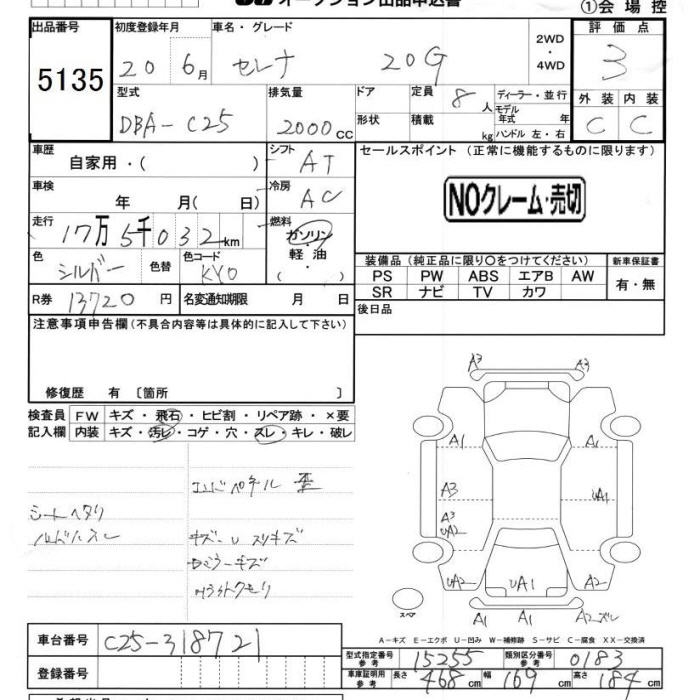 オークション出品申込書
①会場控
出品番号 5135
初度登録年月 20 6月
車名・グレード セレナ 20G
2WD・4WD
評価点 3
型式 DBA-C25
排気量 2000cc
ドア 形状
定員 8人
積載 kg
ディーラー・並行
モデル年式 年
ハンドル 左・右
外装 C 内装 C
車歴 自家用・( )
シフト AT
セールスポイント(正常に機能するものに限ります)
車検 年 月( 日)
冷房 AC
NOクレーム・売切
走行 17万5千032km
燃料 ガソリン・軽油・( )
色 シルバー 色替
色コード KY0
装備品(純正品に限り○をつけてください)
新車保証書
PS PW ABS エアB AW
有・無
SR ナビ TV カワ
R券 13720円
名変通知期限 月 日
後日品
注意事項申告欄(不具合内容等は具体的に記入して下さい)
修復歴 有 〔箇所 〕
検査員記入欄
FW キズ・飛石・ヒビ割・リペア跡・×要
内装 キズ・汚レ・コゲ・穴・スレ・キレ・破レ
シートヘタリ
コンドペナール 歪
ハンドルスレ
キズ
A3 A3
A1 A1
A3 UA1
A3
UA2
UA2 UA1 A2
A1 A1 A2ズレ
スペア
A-キズ E-エクボ U-凹み W-補修跡 S-サビ C-腐食 XX-交換済
車台番号 C25-318721
型式指定番号 参考 15255
類別区分番号 参考 0183
登録番号
車庫証明用 参考 長さ 468cm 幅 169cm 高さ 184cm